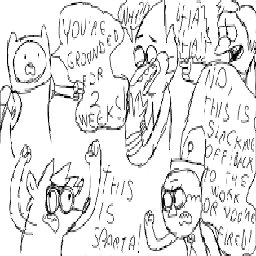 YOU'RE
GROUNDED
FOR
2
WEEKS!
WHAT
THAT
NO,
THIS IS
SLACKING
OFF. BACK
TO THE
WORK
OR YOU'RE
FIRED!!
THIS
IS
SPARTA!